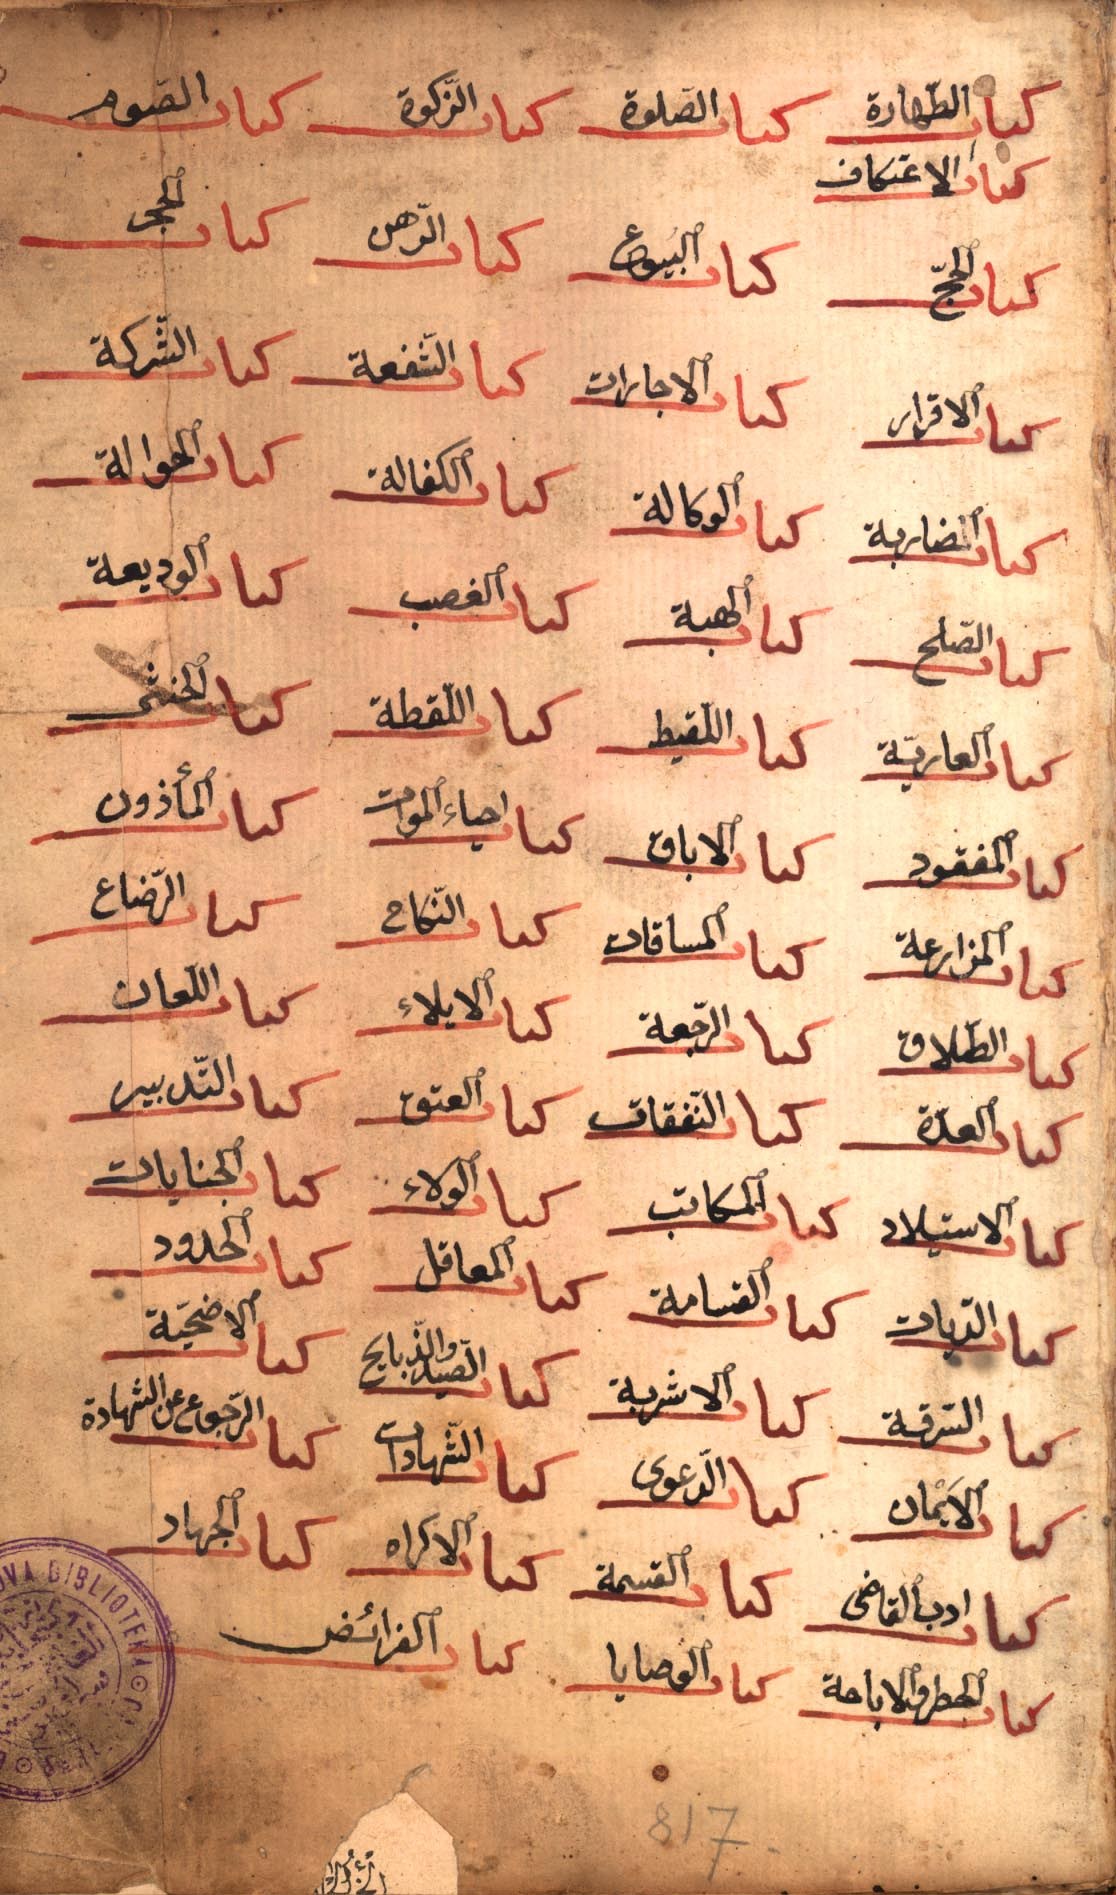 كتاب الطّهارة كتاب الصّلوة كتاب الزّكوة كتاب الصّوم
كتاب الاعتكاف
كتاب الحجّ كتاب البيوع كتاب الرّهن كتاب الحجر
كتاب الاقرار كتاب الاجارات كتاب الشّفعة كتاب الشّركة
كتاب المضاربة كتاب الوكالة كتاب الكفالة كتاب الحوالة
كتاب الصّلح كتاب الهبة كتاب الغصب كتاب الوديعة
كتاب العاريّة كتاب اللّقيط كتاب اللّقطة كتاب الخنثى
كتاب المفقود كتاب الاباق كتاب احياء الموات كتاب المأذون
كتاب المزارعة كتاب المساقات كتاب النّكاح كتاب الرّضاع
كتاب الطّلاق كتاب الرّجعة كتاب الايلاء كتاب اللّعان
كتاب العدّة كتاب النّفقات كتاب العتق كتاب التّدبير
كتاب الاستيلاد كتاب المكاتب كتاب الولاء كتاب الجنايات
كتاب الدّيات كتاب القسامة كتاب المعاقل كتاب الحدود
كتاب السّرقة كتاب الاشربة كتاب الصّيد والذّبايح كتاب الاضحيّة
كتاب الاَيْمان كتاب الدّعوى كتاب الشّهادات كتاب الرّجوع عن الشهادة
كتاب ادب القاضى كتاب القسمة كتاب الاكراه كتاب الجهاد
كتاب الحظر والاباحة كتاب الوصايا كتاب الفرائض
817